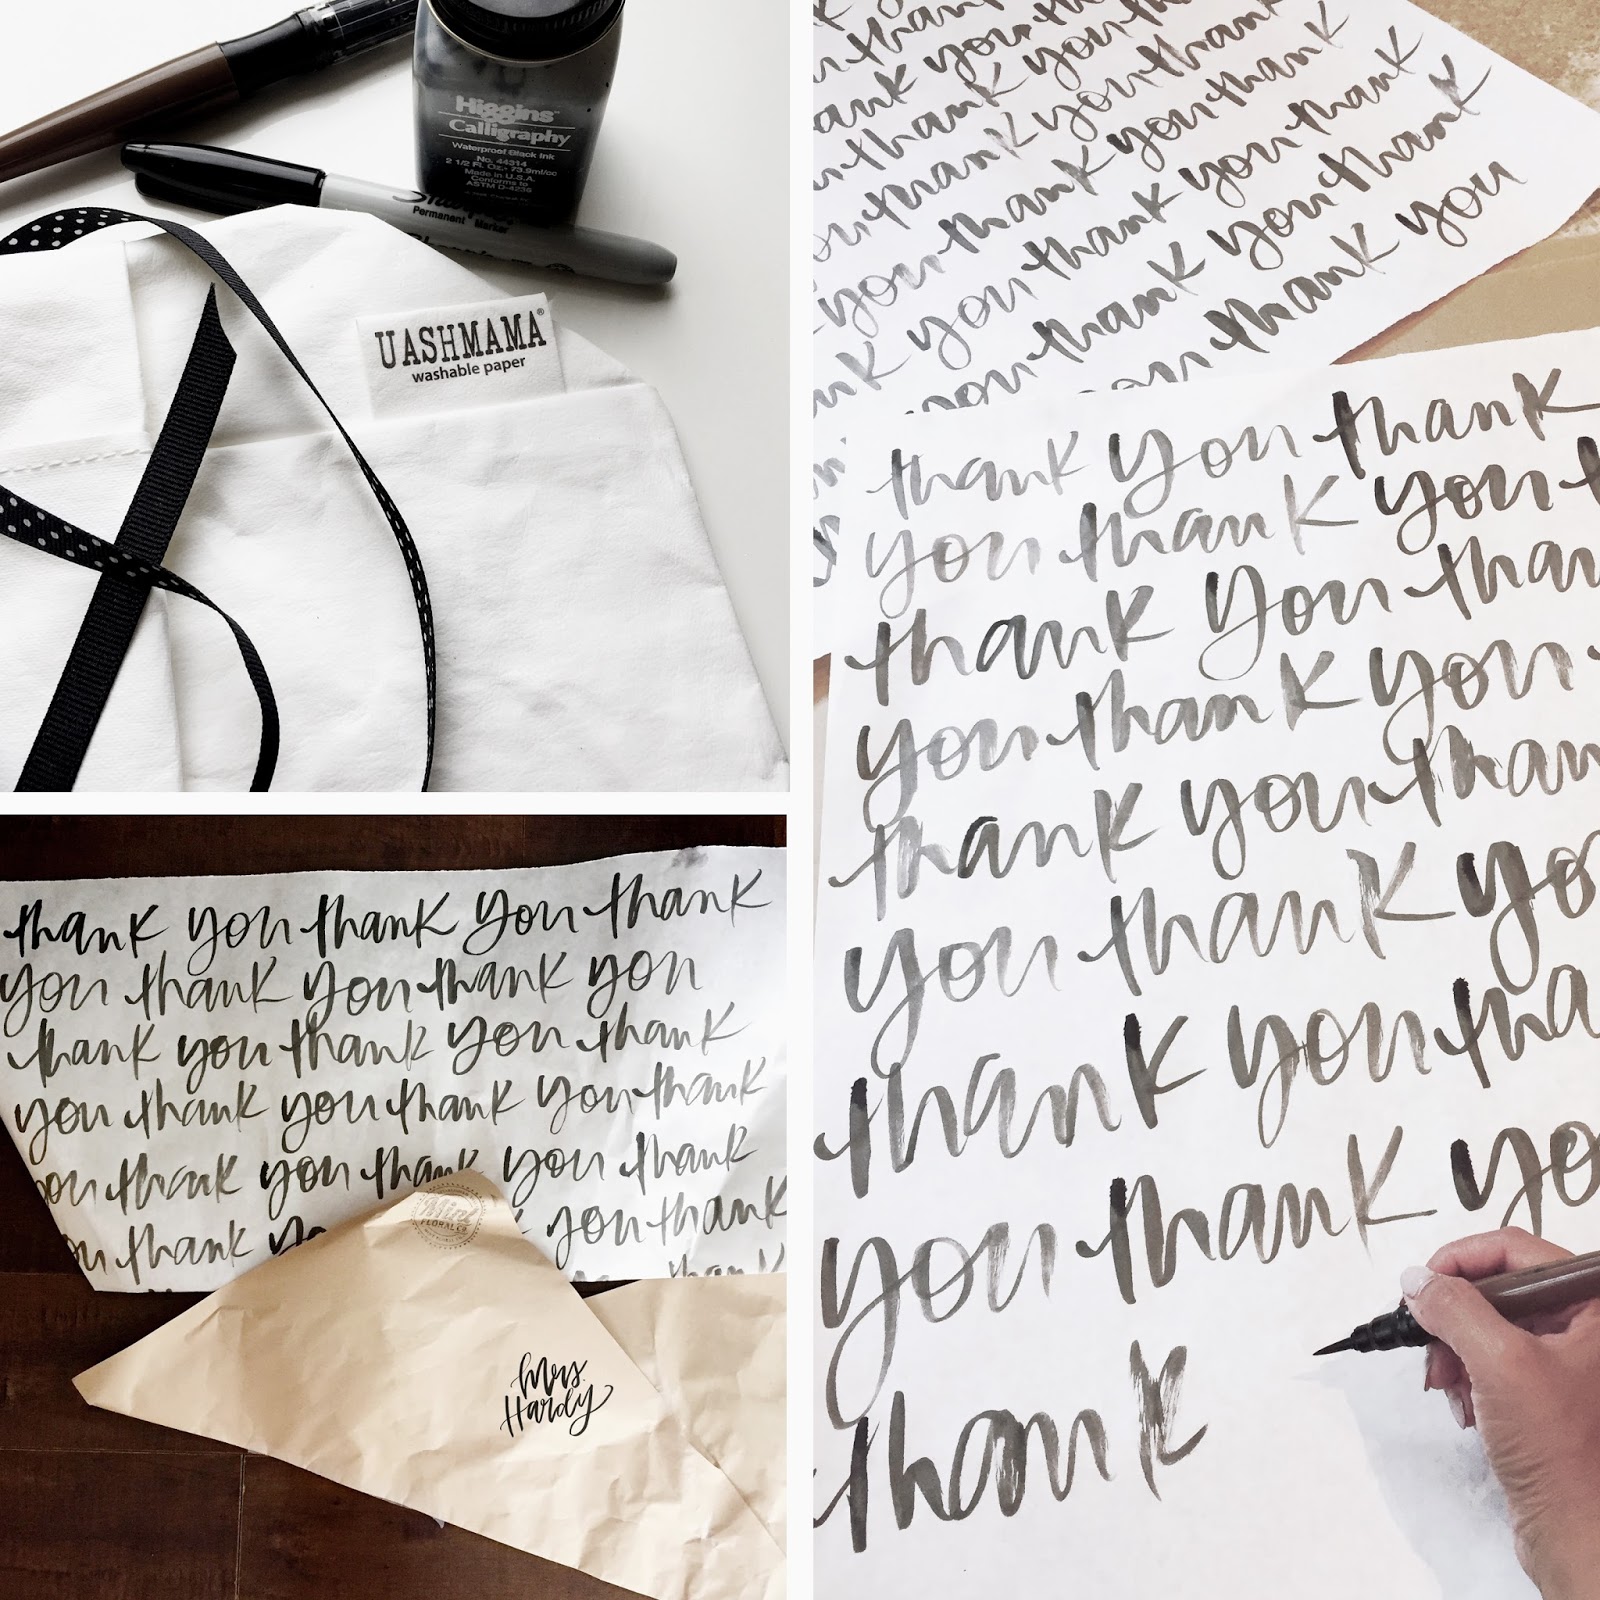 Higgins™
Calligraphy
Waterproof Black Ink
No. 44314
2 1/2 Fl. Oz.-73.9ml/cc
Made in U.S.A.
Conforms to
ASTM D-4236
Sharpie
Permanent Marker
UASHMAMA®
washable paper
thank you thank you thank
you thank you thank you
thank you thank you thank
you thank you thank you thank
you thank you thank you thank
you thank you thank
thank
Mint
FLORAL CO.
Mrs.
Hardy
thank you
thank you thank
thank you thank
you thank you thank
you thank you thank
you thank you thank
you thank you thank
thank you thank you
thank you thank
you thank you
thank you
you thank you
thank you
you thank you
thank you
you thank
thank